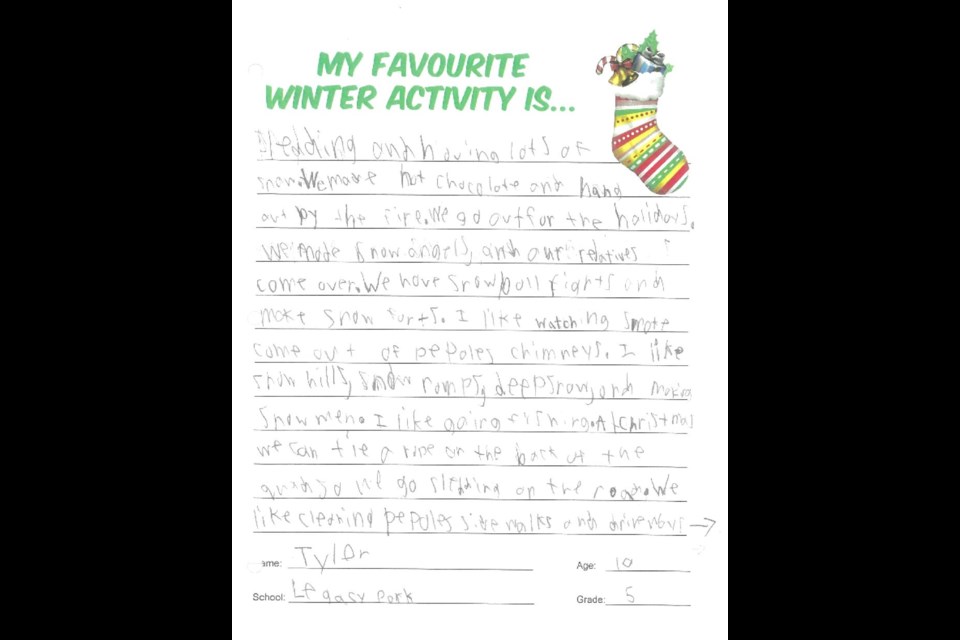 MY FAVOURITE
WINTER ACTIVITY IS...
sledding and having lots of
snow. We make hot chocolate and hang
out by the fire. We go out for the holidays.
We made snow angels, and our relatives
come over. We have snowball fights and
make snow forts. I like watching smoke
come out of pepoles chimneys. I like
snow hills, snow ramps, deep snow, and making
snow men. I like going fishing. At Christmas
we can tie a rope on the back of the
quad so we go sledding on the road. We
like clearing pepoles side walks and driveways →
ame: Tyler
Age: 10
School: Legacy Park
Grade: 5